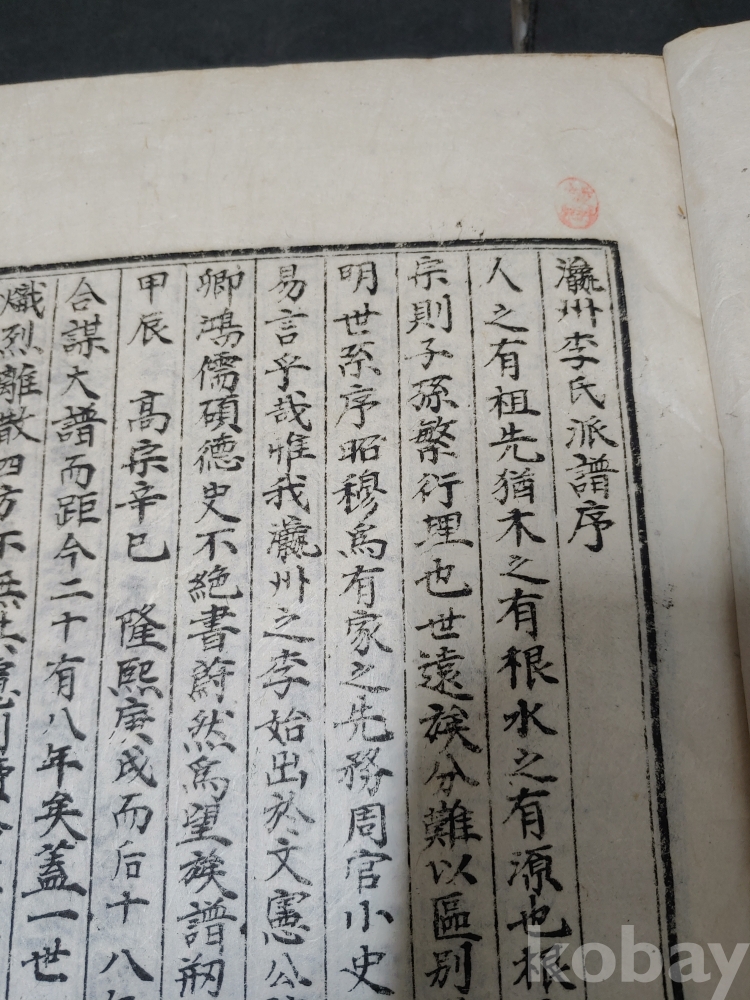 瀛州李氏派譜序
人之有祖先猶木之有根水之有源也根
宗則子孫繁衍理也世遠族分難以區别
明世系序昭穆爲有家之先務周官小史
易言乎哉惟我瀛州之李始出於文憲公
卿鴻儒碩德史不絶書蔚然爲望族譜刱
甲辰 高宗辛巳 隆熙庚戌而后十八
合謀大譜而距今二十有八年矣蓋一世
熾烈離散四方不無其
kobay